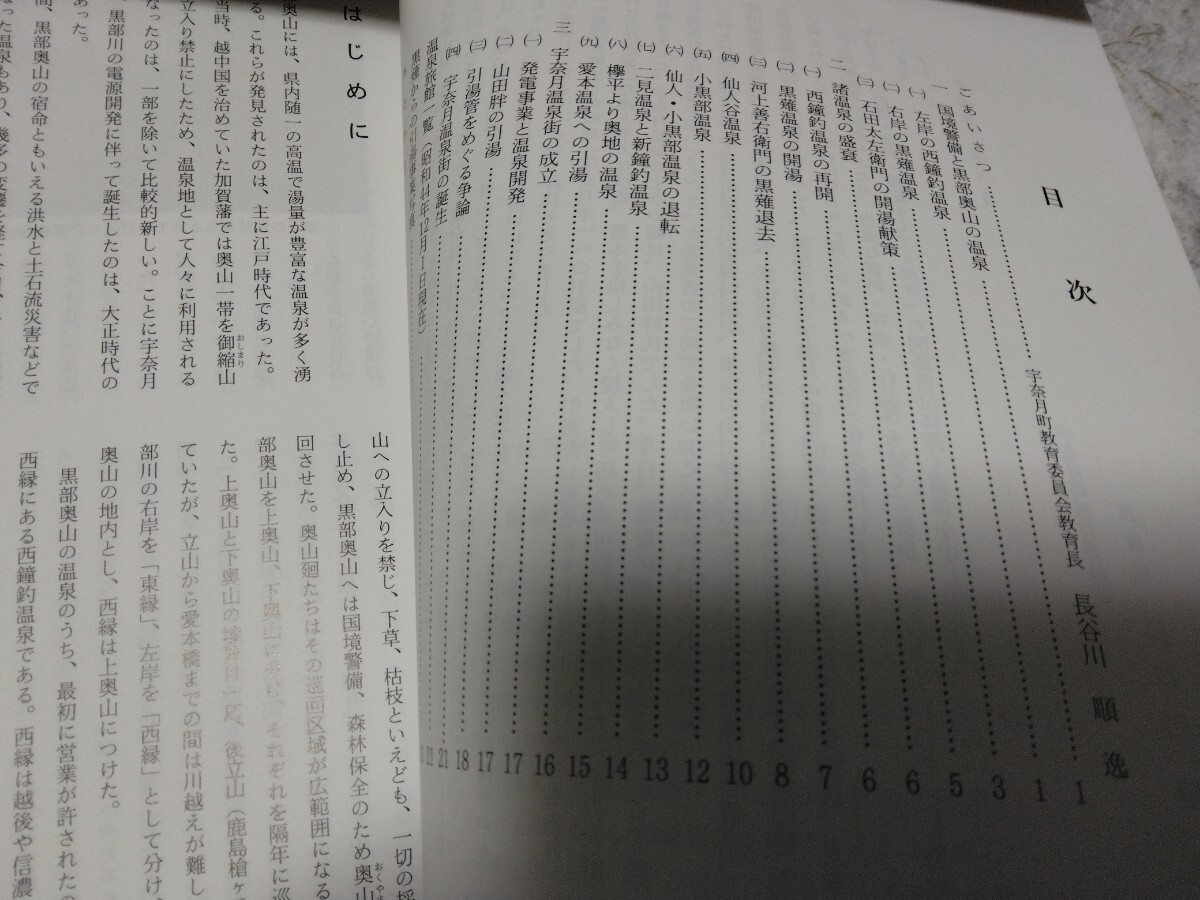 目次
ごあいさつ……宇奈月町教育委員会教育長 長谷川 順逸
一 国境警備と黒部奥山の温泉……1
㈠ 左岸の西鐘釣温泉……1
㈡ 右岸の黒薙温泉……3
㈢ 石田太左衛門の開湯献策……5
二 諸温泉の盛衰……6
㈠ 西鐘釣温泉の再開……6
㈡ 黒薙温泉の開湯……7
㈢ 河上善右衛門の黒薙退去……8
㈣ 仙人谷温泉……10
㈤ 小黒部温泉……12
㈥ 仙人・小黒部温泉の退転……13
㈦ 二見温泉と新鐘釣温泉……14
㈧ 欅平より奥地の温泉……15
㈨ 愛本温泉への引湯……16
三 宇奈月温泉街の成立……17
㈠ 発電事業と温泉開発……17
㈡ 山田胖の引湯……18
㈢ 引湯管をめぐる争論……21
㈣ 宇奈月温泉街の誕生……21
温泉旅館一覧(昭和44年12月1日現在)
はじめに
奥山には、県内随一の高温で湯量が豊富な温泉が多く湧
る。これらが発見されたのは、主に江戸時代であった。
当時、越中国を治めていた加賀藩では奥山一帯を御縮山
おしまり
立入り禁止にしたため、温泉地として人々に利用される
なったのは、一部を除いて比較的新しい。ことに宇奈月
、黒部川の電源開発に伴って誕生したのは、大正時代の
あった。
間、黒部奥山の宿命ともいえる洪水と土石流災害などで
山への立入りを禁じ、下草、枯枝といえども、一切の採
し止め、黒部奥山へは国境警備、森林保全のため奥山
おくやま
回させた。奥山廻たちはその巡回区域が広範囲になる
部奥山を上奥山、下奥山に分け、それぞれを隔年に巡
た。上奥山と下奥山の境界は一応、後立山(鹿島槍ヶ
ていたが、立山から愛本橋までの間は川越えが難し
部川の右岸を「東縁」、左岸を「西縁」として分け、
奥山の地内とし、西縁は上奥山につけた。
黒部奥山の温泉のうち、最初に営業が許されたの
西縁にある西鐘釣温泉である。西縁は越後や信濃